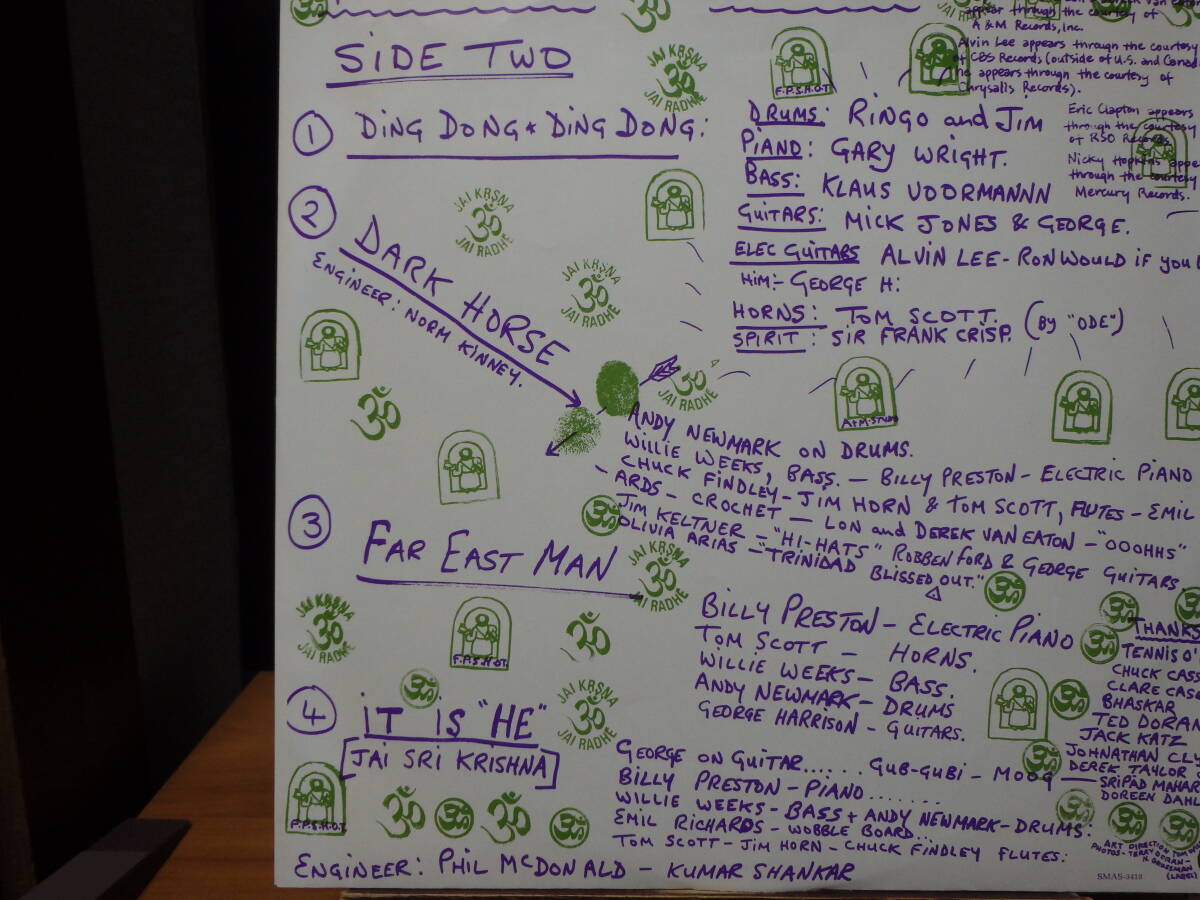 appear through the courtesy of
A & M Records, Inc.
Alvin Lee appears through the courtesy
of CBS Records (outside of U.S. and Canada
he appears through the courtesy of
Chrysalis Records).
Eric Clapton appears
through the courtesy
of RSO Records
Nicky Hopkins appe
through the courtesy
Mercury Records.
SIDE TWO
JAI KRSNA
ॐ
JAI RADHE
F.P.S.H.O.T.
① DING DONG * DING DONG:
DRUMS: RINGO and JIM
PIANO: GARY WRIGHT.
BASS: KLAUS VOORMANNN
GUITARS: MICK JONES & GEORGE.
ELEC GUITARS ALVIN LEE - RON WOULD if you l
HIM:- GEORGE H:
HORNS: TOM SCOTT. (BY "ODE")
SPIRIT: SIR FRANK CRISP.
② DARK HORSE
ENGINEER: NORM KINNEY.
JAI KRSNA
ॐ
JAI RADHE
JAI KRSNA
ॐ
JAI RADHE
ॐ
JAI RADHE
A+M STUDIO
ANDY NEWMARK ON DRUMS.
WILLIE WEEKS, BASS. — BILLY PRESTON - ELECTRIC PIANO
CHUCK FINDLEY - JIM HORN & TOM SCOTT, FLUTES - EMIL
- ARDS - CROCHET — LON and DEREK VAN EATON - "OOOHHS"
JIM KELTNER - "HI-HATS" ROBBEN FORD & GEORGE GUITARS
OLIVIA ARIAS - "TRINIDAD BLISSED OUT."
③ FAR EAST MAN
JAI KRSNA
ॐ
JAI RADHE
BILLY PRESTON - ELECTRIC PIANO
TOM SCOTT - HORNS.
WILLIE WEEKS - BASS.
ANDY NEWMARK - DRUMS
GEORGE HARRISON - GUITARS.
JAI KRSNA
ॐ
JAI RADHE
F.P.S.H.O.T.
④ IT IS "HE"
[JAI SRI KRISHNA]
JAI KRSNA
ॐ
JAI RADHE
F.P.S.H.O.T.
GEORGE ON GUITAR...... GUB-GUBI - MOOG
BILLY PRESTON - PIANO.......
WILLIE WEEKS - BASS + ANDY NEWMARK - DRUMS:
EMIL RICHARDS - WOBBLE BOARD...
TOM SCOTT - JIM HORN - CHUCK FINDLEY FLUTES:
ENGINEER: PHIL MCDONALD - KUMAR SHANKAR
THANKS
TENNIS O'
CHUCK CASS
CLARE CAS
BHASKAR
TED DORAN
JACK KATZ
JOHNATHAN CL
DEREK TAYLOR
SRIPAD MAHAR
DOREEN DAHL
ART DIRECTION
PHOTOS - TERRY DORAN
(LABEL)
SMAS-3418